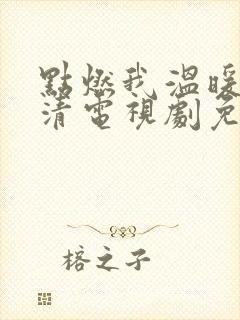 點燃我溫暖
清電視劇免
榕之子